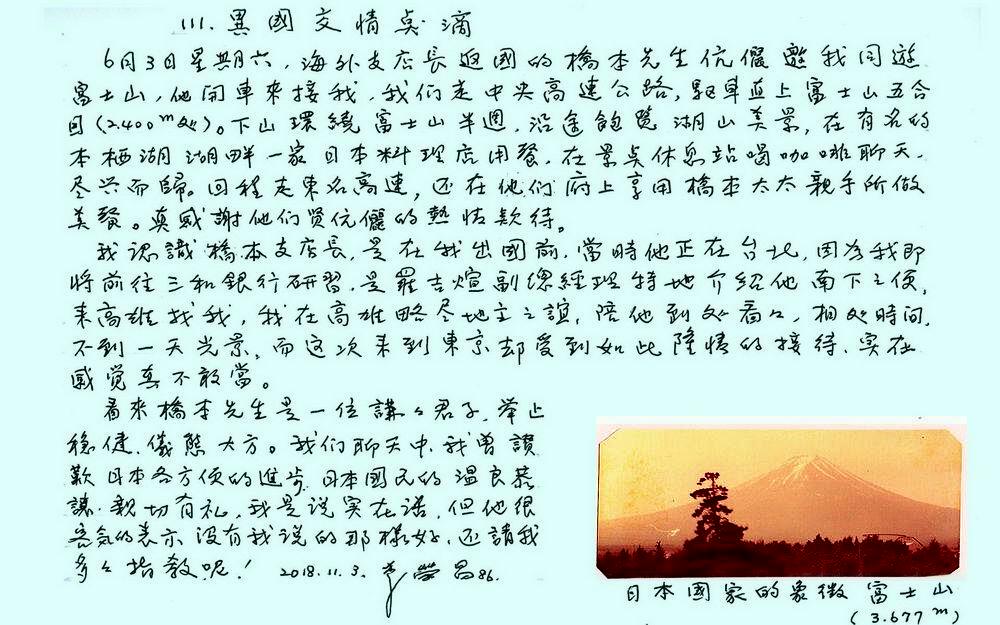 111. 異國交情点滴
6月3日星期六，海外支店長返國的橋本先生伉儷邀我同遊
富士山，他開車來接我，我们走中央高速公路，駆車直上富士山五合
目(2,400m处)。下山環繞富士山半週，沿途飽覽湖山美景，在有名的
本栖湖湖畔一家日本料理店用餐，在景点休息站喝咖啡聊天，
尽兴而歸。回程走東名高速，还在他们府上享用橋本太太親手所做
美餐。真感謝他们贤伉儷的熱情款待。
我認識橋本支店長，是在我出國前，當時他正在台北，因為我即
將前往三和銀行研習，是羅吉煊副總經理特地介紹他南下之便，
来高雄找我，我在高雄略尽地主之誼，陪他到处看々，相处時间，
不到一天光景，而这次来到東京却受到如此隆情的接待，实在
感覚真不敢當。
看來橋本先生是一位謙々君子，举止
穩健，儀態大方。我们聊天中，我曾讚
歎日本各方便的進步，日本國民的温良恭
謙，親切有礼，我是说实在话，但他很
客気的表示没有我说的那様好，还請我
多々指教呢！ 2018.11.3. 榮昌86.
日本國家的象徵 富士山
(3.677m)